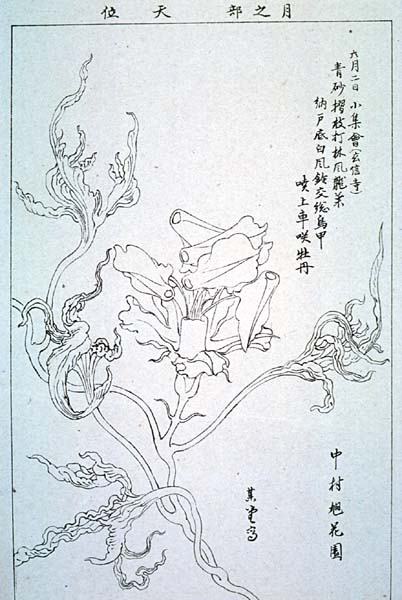 月之部 天位
六月二日 小集會(玄信寺)
青砂摺枝打林風龍葉
納戸底白風鈴交総鳥甲
噴上車咲牡丹
中村旭花園